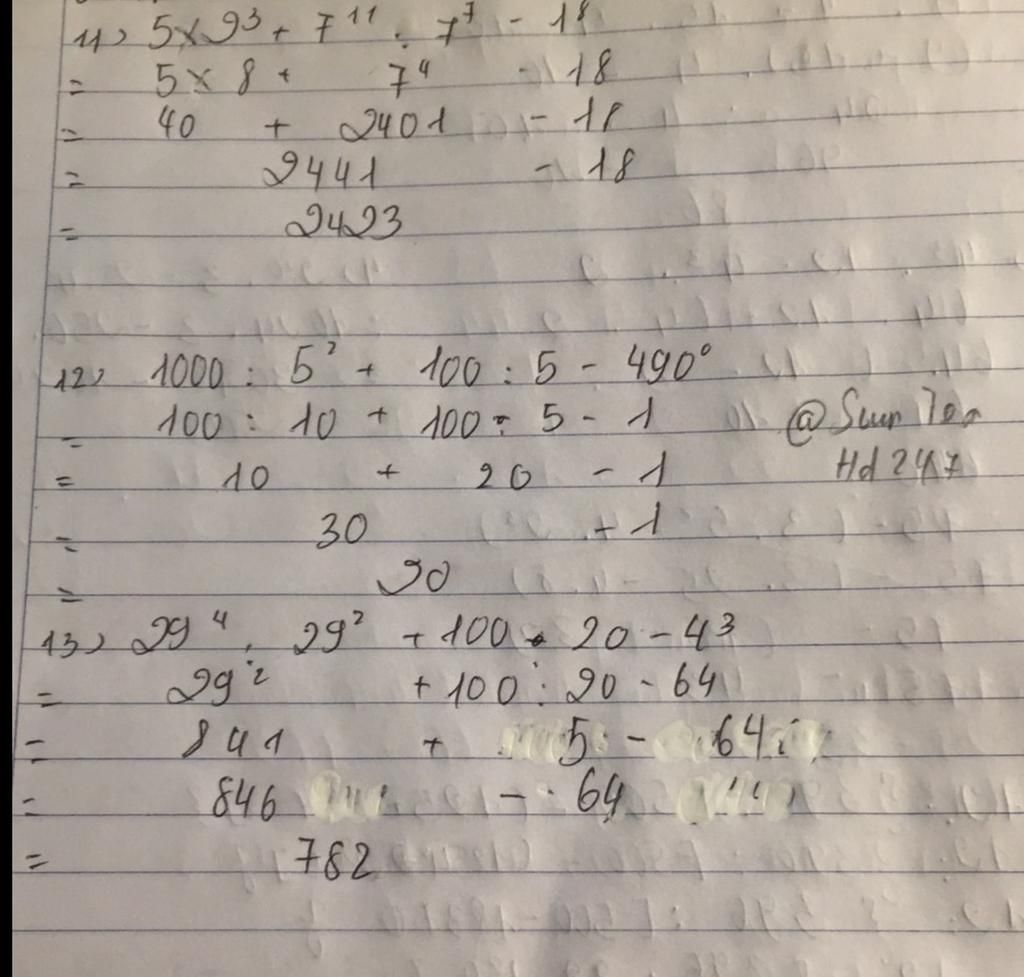 11) 5 x 2³ + 7¹¹ : 7⁷ - 18
= 5 x 8 + 7⁴ - 18
= 40 + 2401 - 18
= 2441 - 18
= 2423
12) 1000 : 5² + 100 : 5 - 490⁰
= 100 : 10 + 100 : 5 - 1
@Sun
= 10 + 20 - 1
Hd 247
= 30 + 1
= 30
13) 29⁴ : 29² + 100 : 20 - 4³
= 29² + 100 : 20 - 64
= 841 + 5 - 64
= 846 - 64
= 782